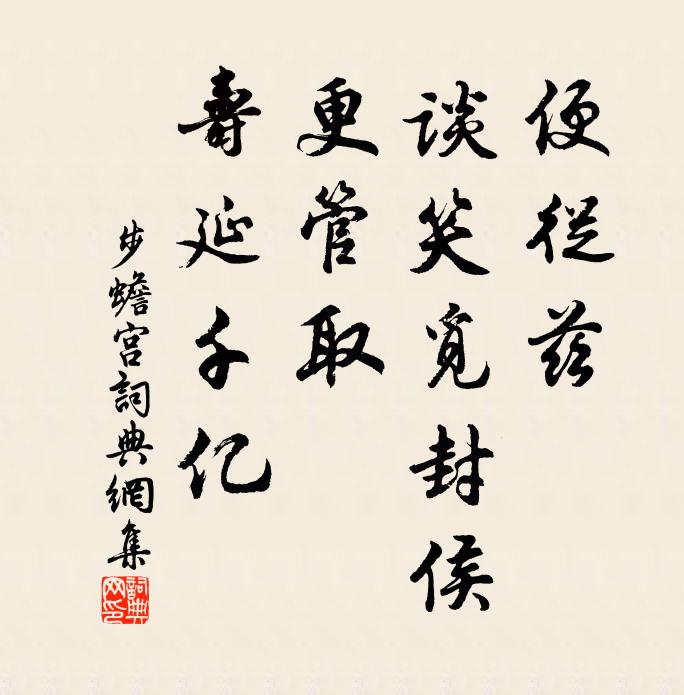 便從茲
談笑覓封侯
更管取
壽延千亿
步蟾宮詞典網集
詞典
网印